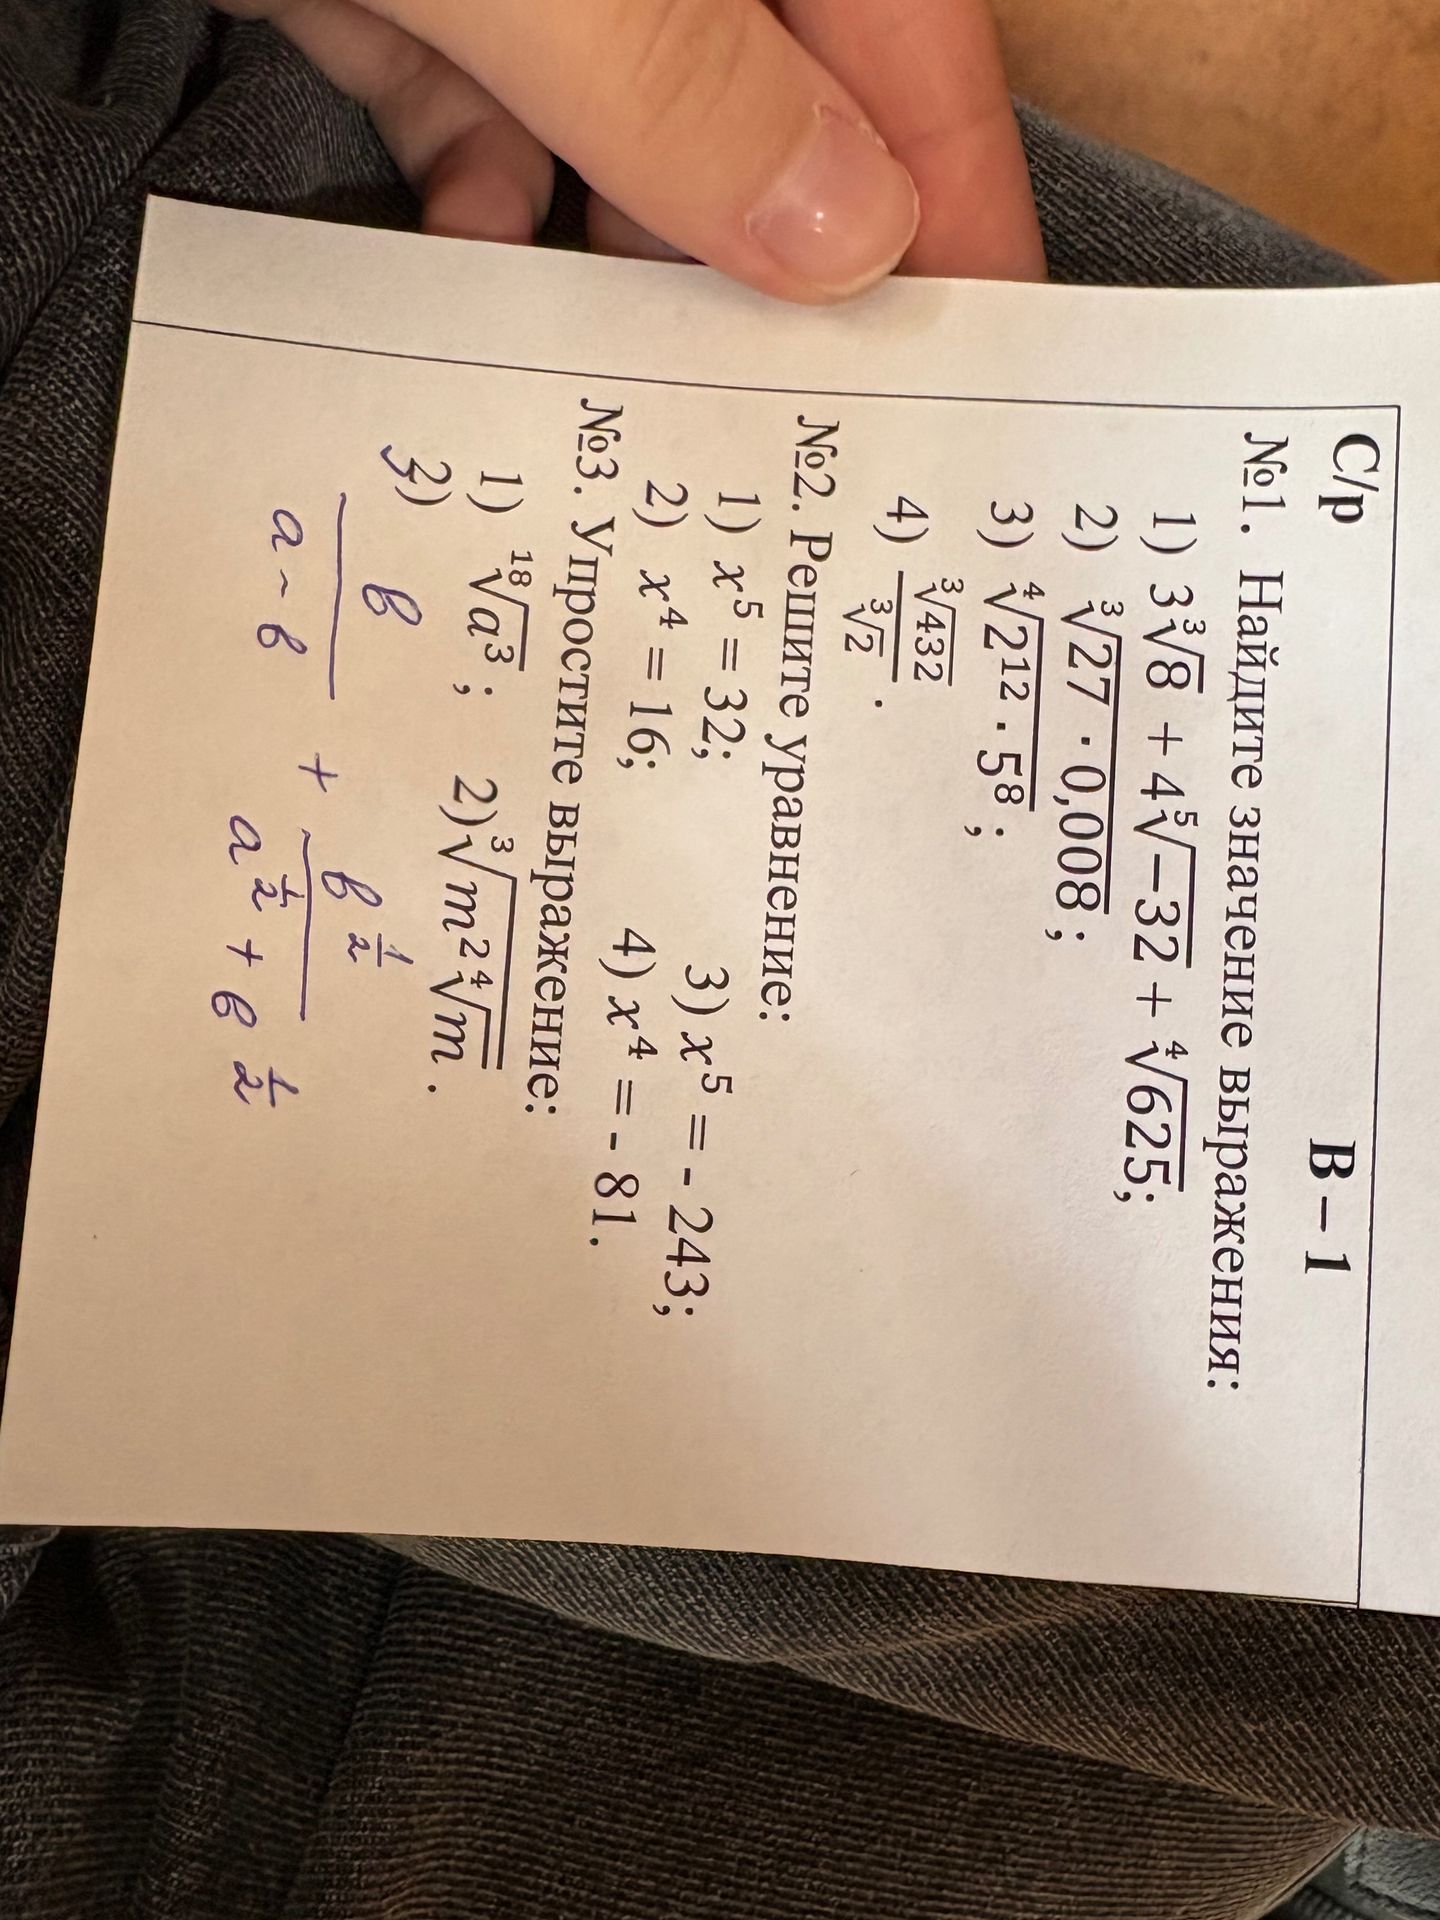 С/р В – 1
№1. Найдите значение выражения:
1) 3∛8 + 4⁵√−32 + ⁴√625;
2) ³√27 · 0,008;
3) ⁴√2¹² · 5⁸;
4) ³√432 / ³√2 .
№2. Решите уравнение:
1) x⁵ = 32; 3) x⁵ = - 243;
2) x⁴ = 16; 4) x⁴ = - 81.
№3. Упростите выражение:
1) ¹⁸√a³; 2) ³√m² ⁴√m .
3) в / (a - в) + в^(1/2) / (a^(1/2) + в^(1/2))